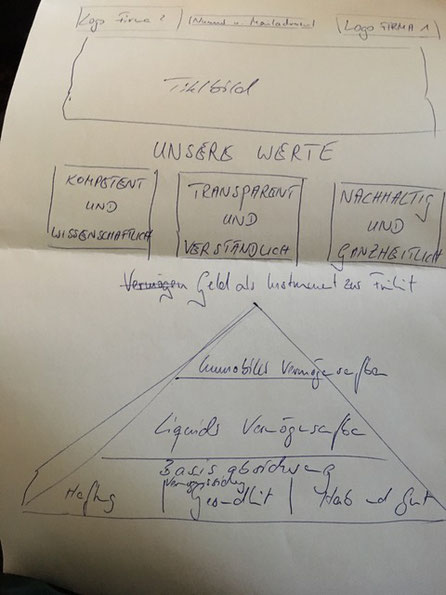 Logo Firma 2 | Logo FIRMA 1
Titelbild
UNSERE WERTE
KOMPETENT
UND
WISSENSCHAFTLICH
TRANSPARENT
UND
VERSTÄNDLICH
NACHHALTIG
UND
GANZHEITLICH
Vermögen Geld als Instrument zur Freiheit
Immobiles Vermögen
Liquides Vermögen
Basisabsicherung
Haftung
Gesundheit
Hab und Gut